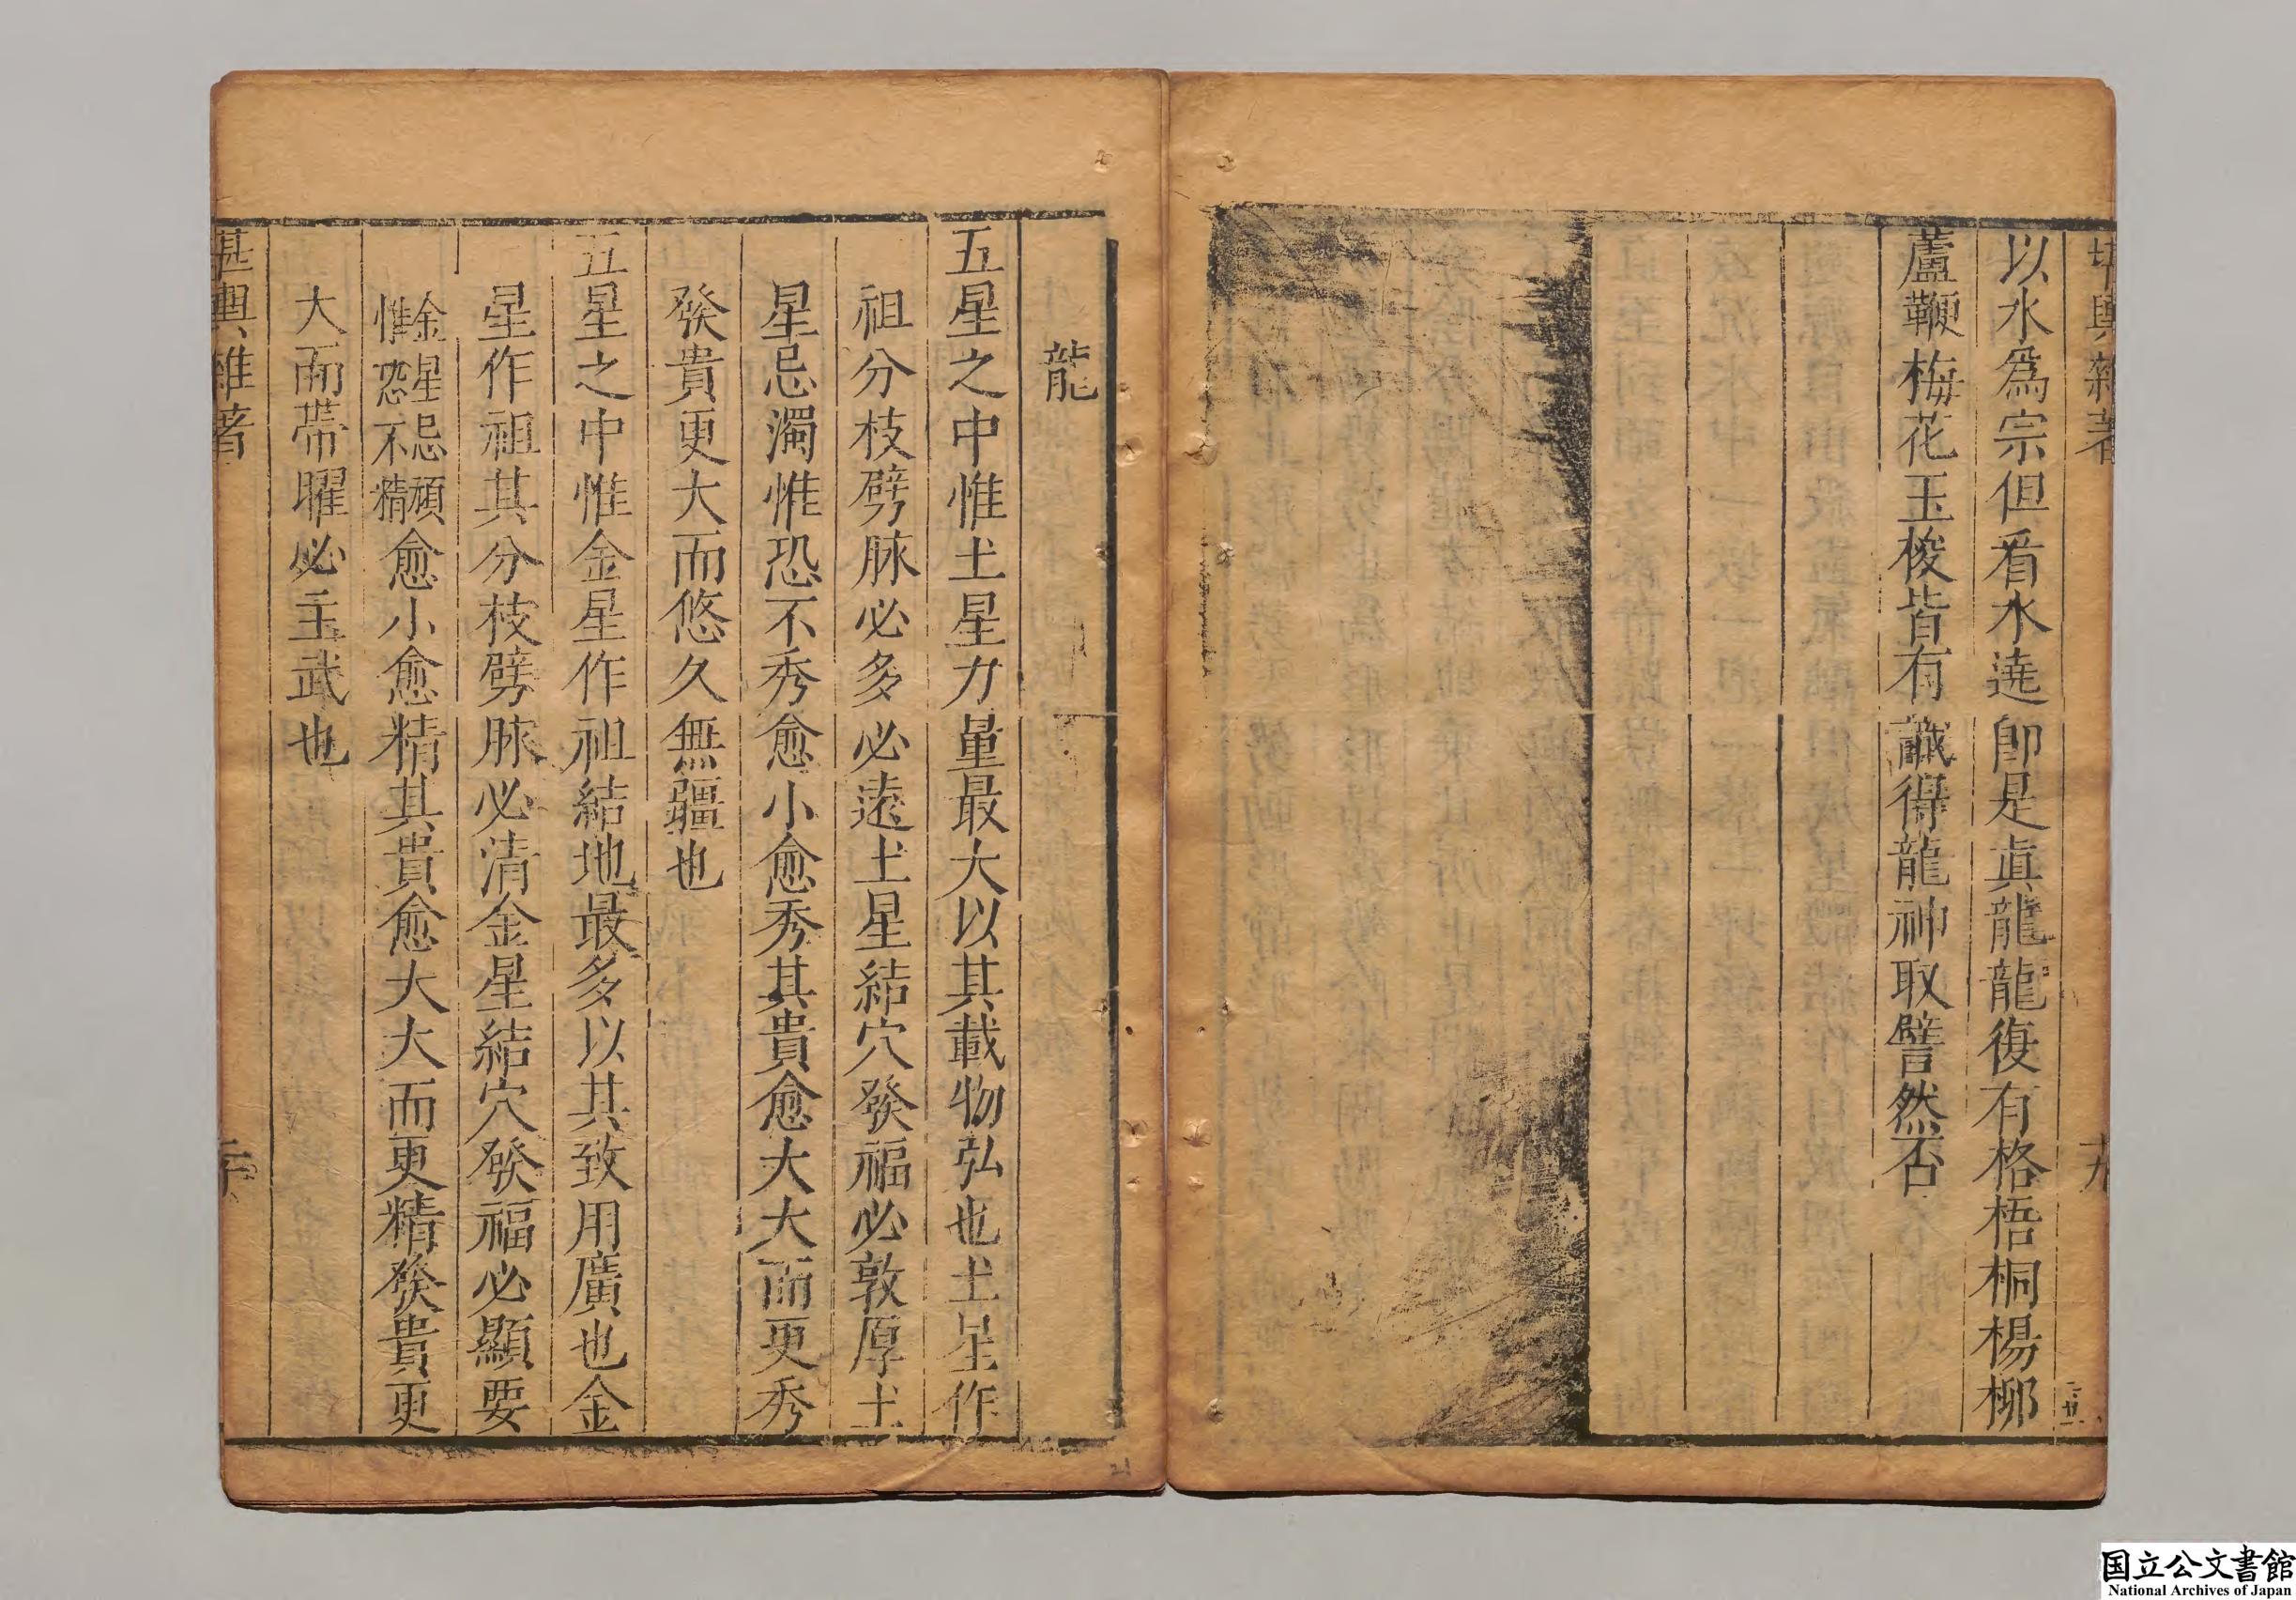 堪輿雜著
十九
以水爲宗但看水遶卽是眞龍龍復有格梧桐楊柳
蘆鞭梅花玉梭皆有識得龍神取譬然否
龍
五星之中惟土星力量最大以其載物弘也土星作
祖分枝劈脉必多必遠土星結穴發福必敦厚土
星忌濁惟恐不秀愈小愈秀其貴愈大大而更秀
發貴更大而悠久無疆也
五星之中惟金星作祖結地最多以其致用廣也金
星作祖其分枝劈脉必清金星結穴發福必顯要
金星忌頑
惟恐不精
愈小愈精其貴愈大大而更精發貴更
大而帶曜必主武也
堪輿雜著
二十
21
国立公文書館
National Archives of Japan